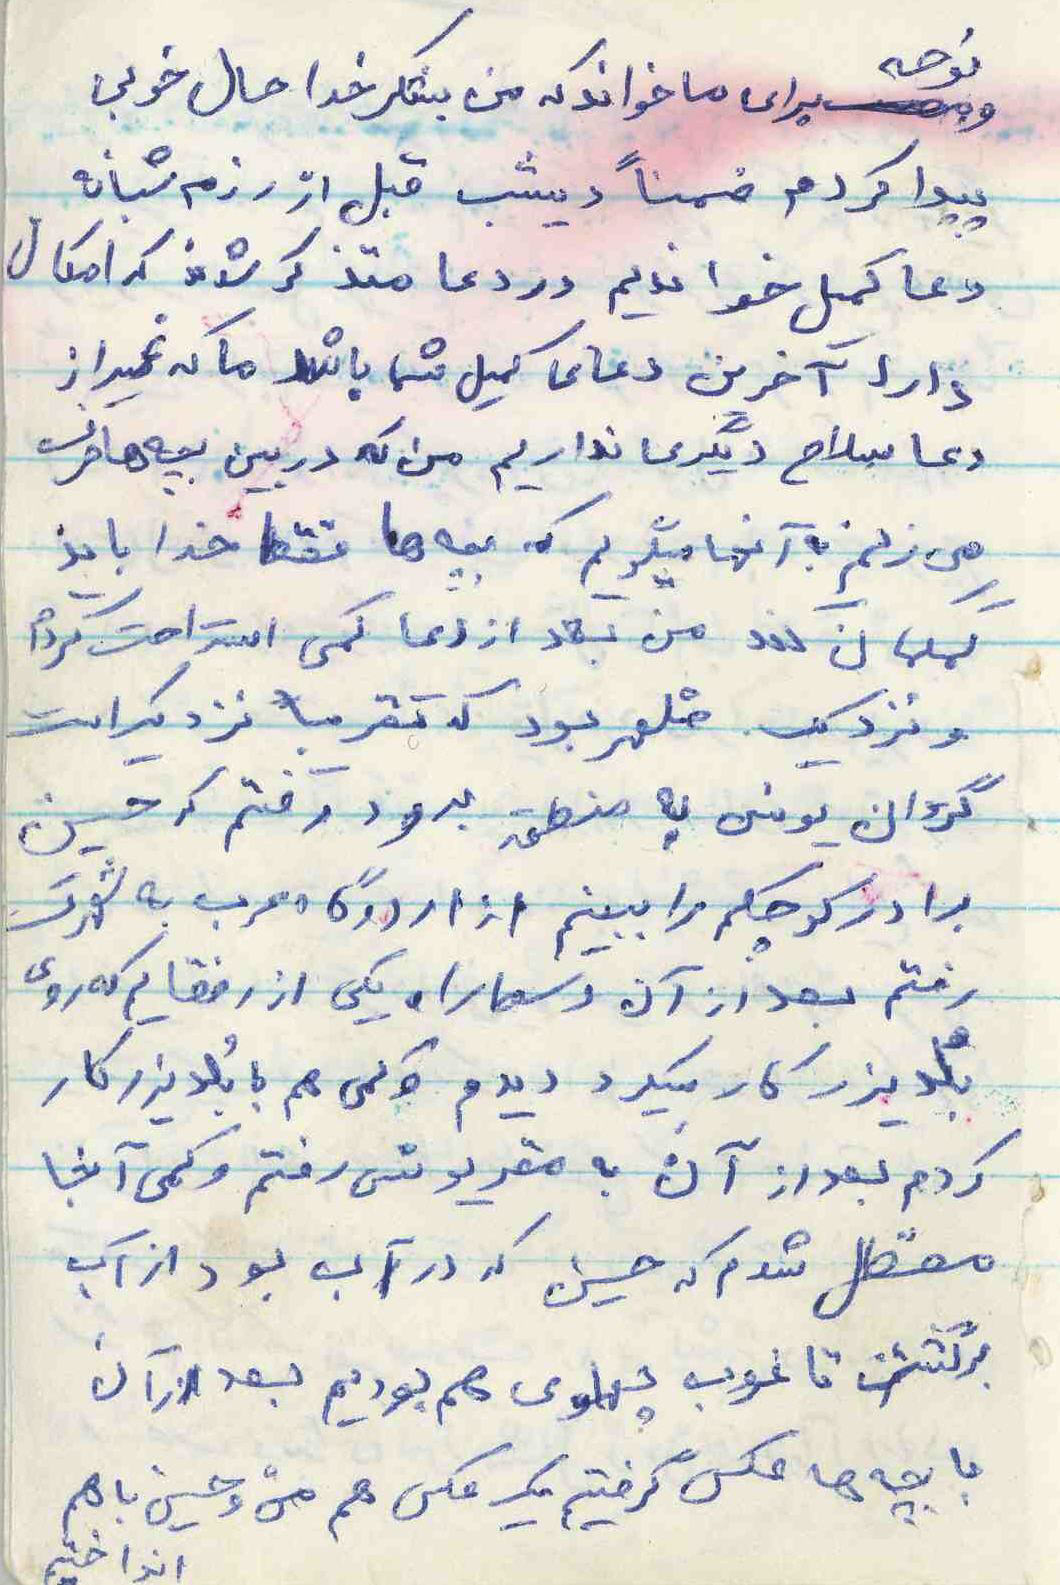 نوحه
برای ما خواند که من بشکر خدا حال خوبی
پیدا کردم ضمناً دیشب قبل از رزم شبانه
دعا کمیل خواندیم در دعا متذکر شدند که امکان
دارد آخرین دعای کمیل شما باشد ما که غیر از
دعا سلاح دیگری نداریم من که در بین بچه ها حرف
می زنم به آنها میگویم که بچه ها فقط خدا باید
کمکمان کند من بعد از دعا کمی استراحت کردم
و نزدیک ظهر بود که تقریباً نزدیک است
گردان یونس به منطقه برود رفتم که حسین
برادر کوچکم را ببینم از اردوگاه عرب به شهرک
رفتم بعد از آن وسط راه یکی از رفقایم که روی
بلدیزر کار میکرد دیدم کمی هم با بلدیزر کار
کردم بعد از آن به مقر یونس رفتم و کمی آنجا
معطل شدم که حسین که در آب بود از آب
برگشت تا غروب پهلوی هم بودیم بعد از آن
با بچه ها عکس گرفتیم یک عکس هم من و حسین با هم
انداختیم